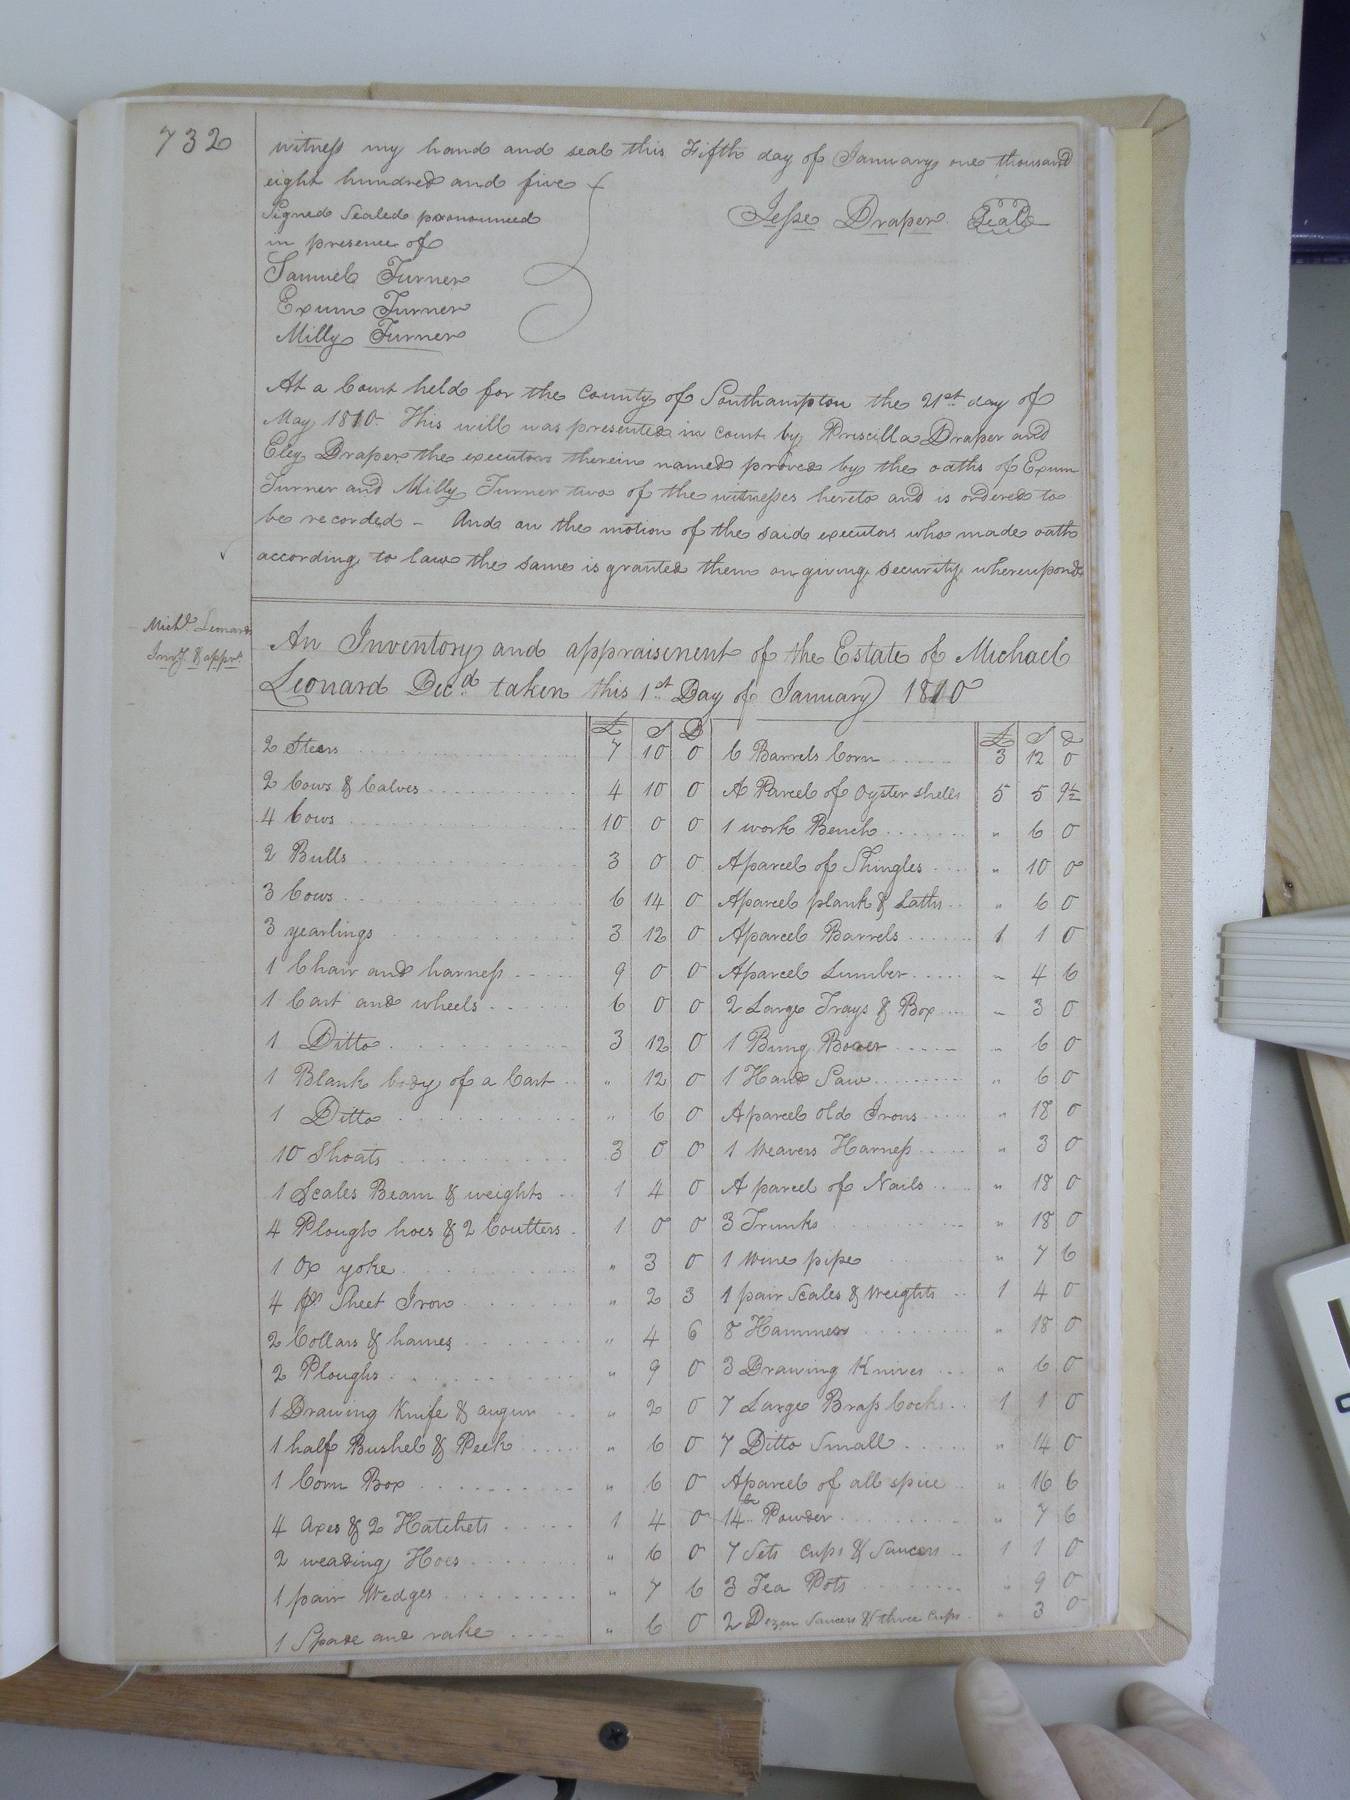 732
witness my hand and seal this Fifth day of January one thousand
eight hundred and five
Signed Sealed pronounced
in presence of
Jesse Draper Seal
Samuel Turner
Exum Turner
Milly Turner
At a Court held for the County of Southampton the 21st day of
May 1810. This will was presented in court by Priscilla Draper and
Eley Draper the executors therein named proved by the oaths of Exum
Turner and Milly Turner two of the witnesses hereto and is ordered to
be recorded - And on the motion of the said executors who made oath
according to law the same is granted them on giving security whereupon &
Michl Leonard
Invy & apprt
An Inventory and appraisement of the Estate of Michael
Leonard Decd taken this 1st Day of January 1810
£ S D
2 Steers 7 10 0
2 Cows & Calves 4 10 0
4 Cows 10 0 0
2 Bulls 3 0 0
3 Cows 6 14 0
3 yearlings 3 12 0
1 Chair and harness 9 0 0
1 Cart and wheels 6 0 0
1 Ditto 3 12 0
1 Blank body of a Cart " 12 0
1 Ditto " 6 0
10 Shoats 3 0 0
1 Scales Beam & weights 1 4 0
4 Plough hoes & 2 Coulters 1 0 0
1 Ox yoke " 3 0
4 ps Sheet Iron " 2 3
2 Collars & hames " 4 6
2 Ploughs " 9 0
1 Drawing Knife & augur " 2 0
1 half Bushel & Peck " 6 0
1 Corn Box " 6 0
4 Axes & 2 Hatchets 1 4 0
2 weading Hoes " 6 0
1 pair Wedges " 7 6
1 Spade and rake " 6 0
£ S d
6 Barrels Corn 3 12 0
A Parcel of Oyster shells 5 5 9½
1 work Bench " 6 0
A parcel of Shingles " 10 0
A parcel plank & Laths " 6 0
A parcel Barrels 1 1 0
A parcel Lumber " 4 6
2 Large Trays & Box " 3 0
1 Bung Borer " 6 0
1 Hand Saw " 6 0
A parcel old Irons " 18 0
1 Weavers Harness " 3 0
A parcel of Nails " 18 0
3 Trunks " 18 0
1 Wine pipe " 7 6
1 pair Scales & Weights 1 4 0
8 Hammers " 18 0
3 Drawing Knives " 6 0
7 Large Brass Cocks 1 1 0
7 Ditto Small " 14 0
A parcel of all spice " 16 6
14lb Powder " 7 6
7 Sets cups & Saucers 1 1 0
3 Tea Pots " 9 0
2 Dozen Saucers & three cups " 3 0